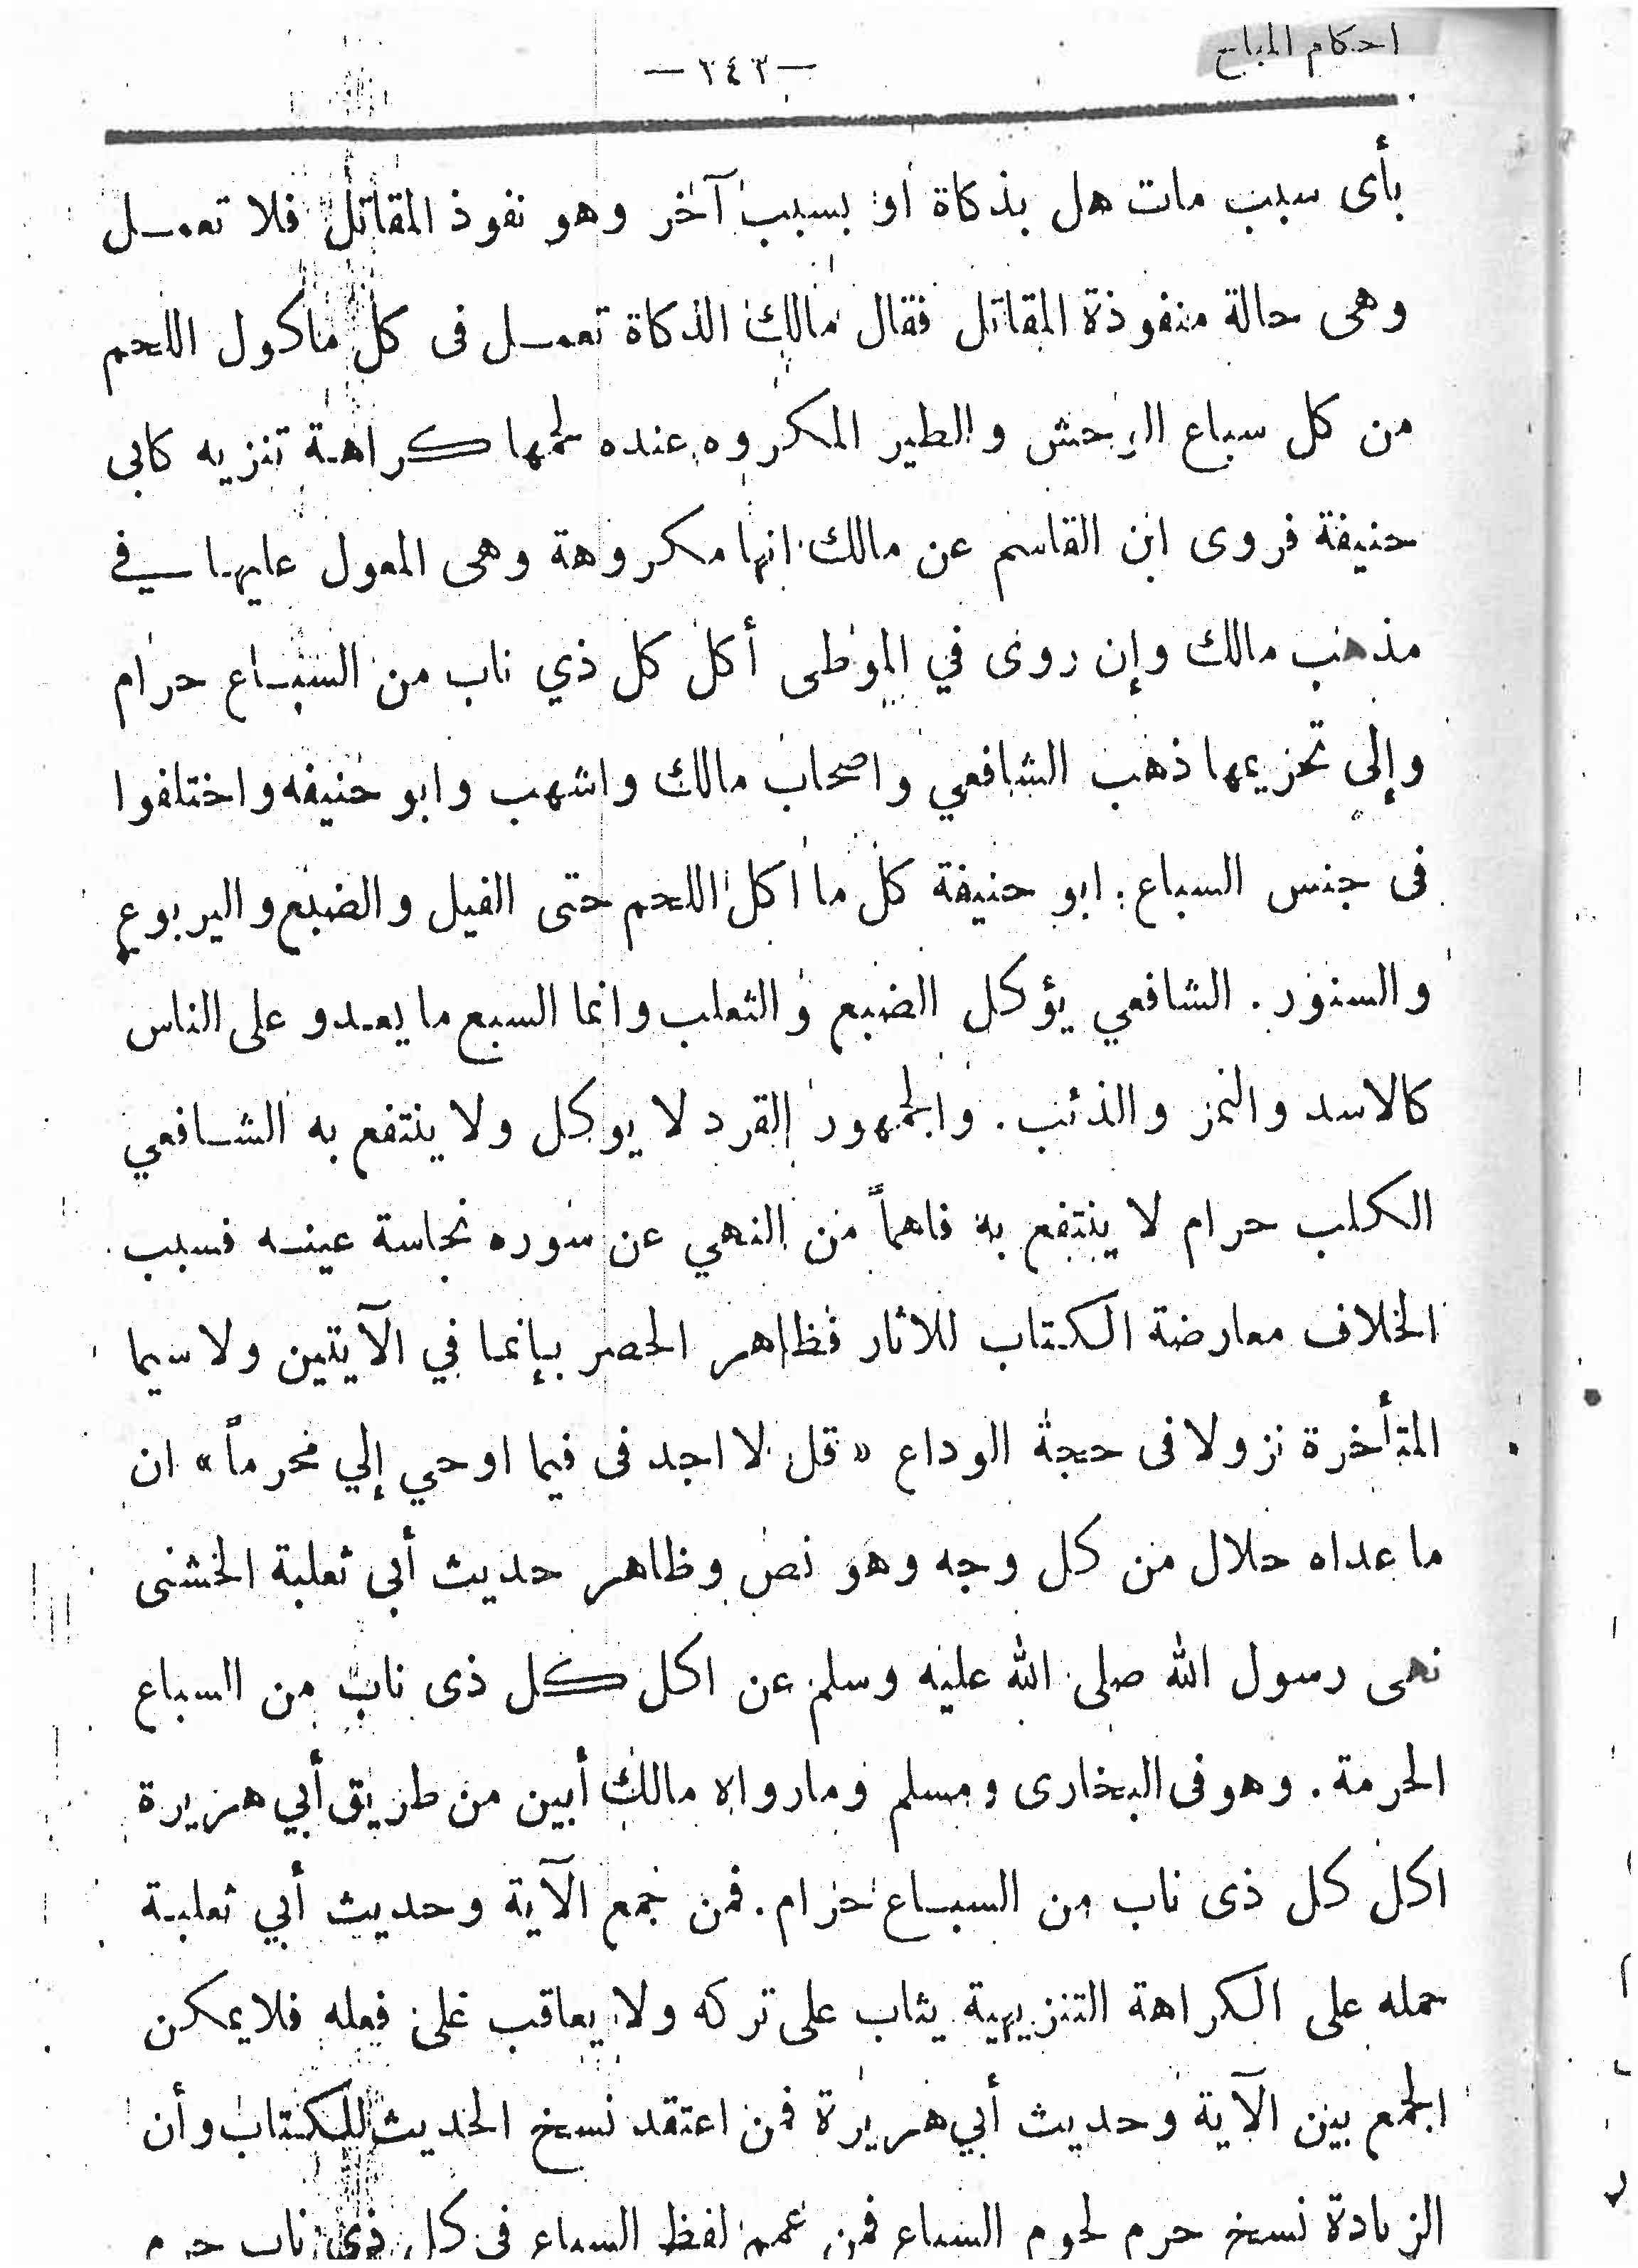 احكام المباح
— ٢٤٣ —
بأى سبب مات هل بذكاة او بسبب آخر وهو نفوذ المقاتل فلا تعمل
وهى حالة منفوذة المقاتل فقال مالك الذكاة تعمل فى كل ماكول اللحم
من كل سباع الوحش والطير المكروه عنده لحمها كراهة تنزيه كابى
حنيفة فروى ابن القاسم عن مالك انها مكروهة وهى المعول عليها في
مذهب مالك وإن روى في الموطى أكل كل ذي ناب من السباع حرام
وإلى تحريمها ذهب الشافعي واصحاب مالك واشهب وابو حنيفه واختلفوا
فى جنس السباع : ابو حنيفة كل ما اكل اللحم حتى الفيل والضبع واليربوع
والسنور . الشافعي يؤكل الضبع والثعلب وانما السبع ما يعدو على الناس
كالاسد والنمر والذئب . والجمهور القرد لا يوكل ولا ينتفع به الشافعي
الكلب حرام لا ينتفع به فاهماً من النهي عن سوره نجاسة عينه فسبب
الخلاف معارضة الكتاب للاثار فظاهر الحصر بإنما في الآيتين ولا سيما
المتأخرة نزولا فى حجة الوداع « قل لا اجد فى فيما اوحي إلي محرماً » ان
ما عداه حلال من كل وجه وهو نص وظاهر حديث أبي ثعلبة الخشنى
نهى رسول الله صلى الله عليه وسلم عن اكل كل ذى ناب من السباع
الحرمة . وهو فى البخارى ومسلم وما رواه مالك أبين من طريق أبي هريرة
اكل كل ذى ناب من السباع حرام . فمن جمع الآية وحديث أبي ثعلبة
حمله على الكراهة التنزيهية يثاب على تركه ولا يعاقب على فعله فلا يمكن
الجمع بين الآية وحديث أبي هريرة فمن اعتقد نسخ الحديث للكتاب وأن
الزيادة نسخ حرم لحوم السباع فمن عمم لفظ السباع فى كل ذى ناب حرم